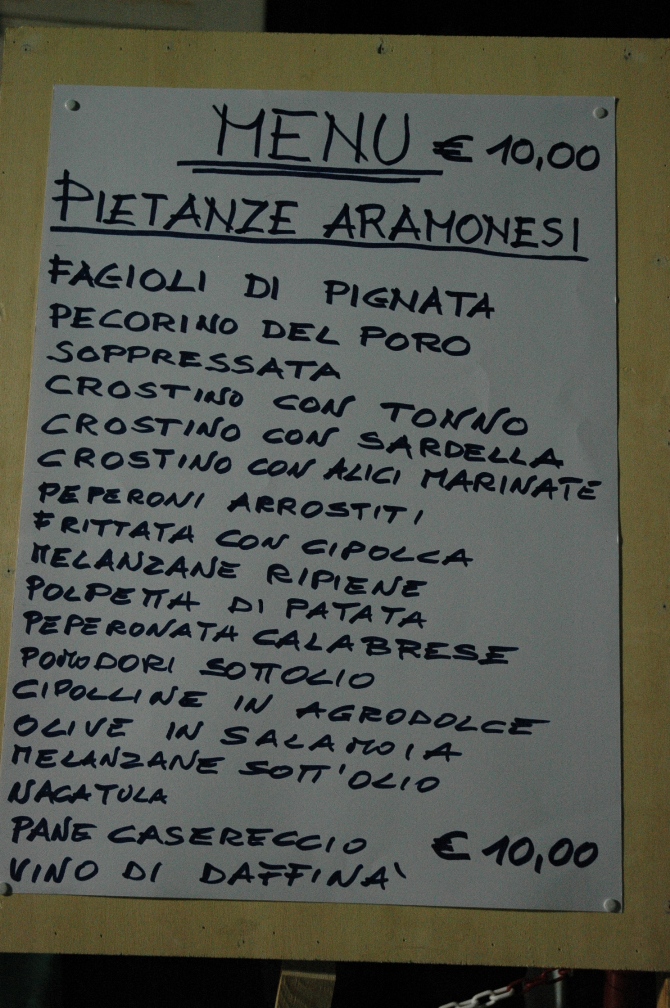 MENU € 10,00
PIETANZE ARAMONESI
FAGIOLI DI PIGNATA
PECORINO DEL PORO
SOPPRESSATA
CROSTINO CON TONNO
CROSTINO CON SARDELLA
CROSTINO CON ALICI MARINATE
PEPERONI ARROSTITI
FRITTATA CON CIPOLLA
MELANZANE RIPIENE
POLPETTA DI PATATA
PEPERONATA CALABRESE
POMODORI SOTTOLIO
CIPOLLINE IN AGRODOLCE
OLIVE IN SALAMOIA
MELANZANE SOTT'OLIO
NACATULA
PANE CASERECCIO € 10,00
VINO DI DAFFINA'